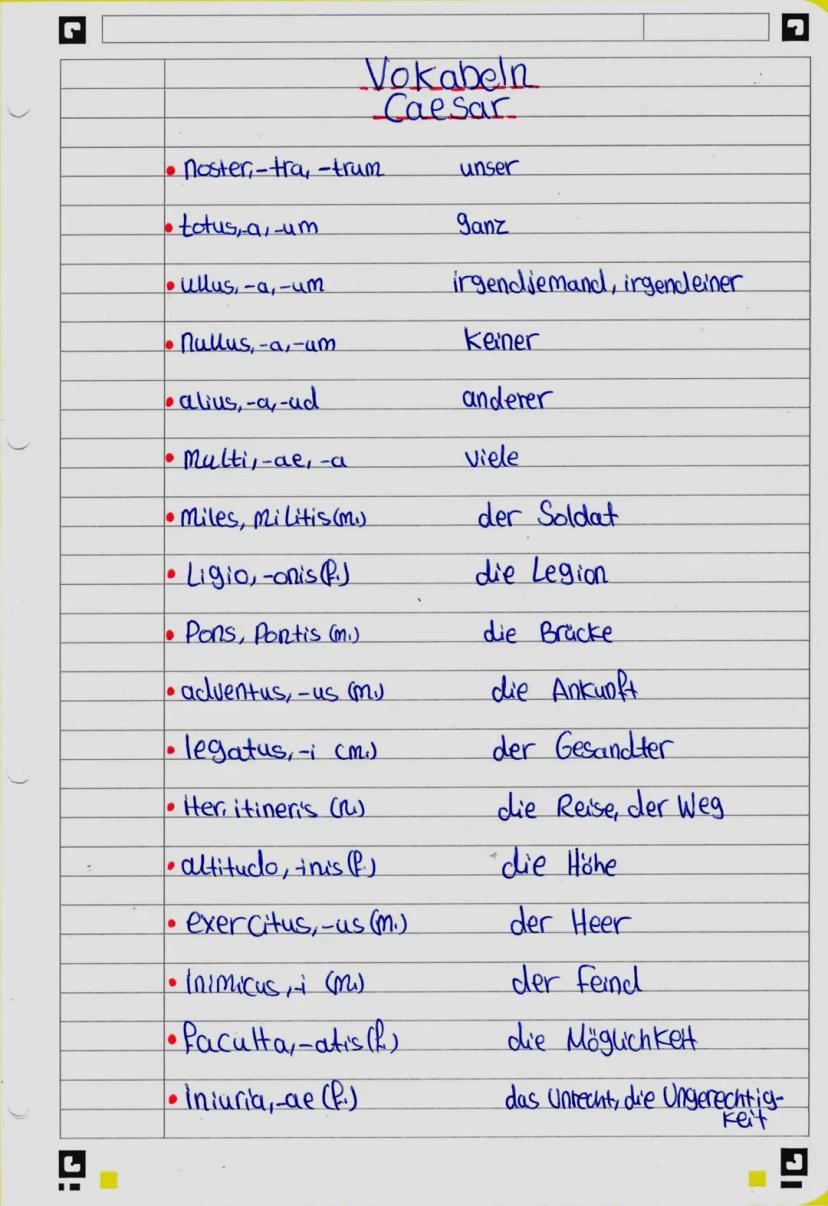 Vokabeln
Caesar
noster,-tra, -trum unser
totus,-a,-um ganz
ullus,-a,-um irgendjemand, irgendeiner
nullus,-a,-um keiner
alius,-a,-ud anderer
multi,-ae, -a viele
miles, militis (m.) der Soldat
Ligio, -onis (f.) die Legion
Pons, Pontis (m.) die Brücke
adventus, -us (m.) die Ankunft
legatus,-i (m.) der Gesandter
Iter, itineris (n.) die Reise, der Weg
altitudo, -inis (f.) die Höhe
exercitus,-us (m.) der Heer
Inimicus,-i (m.) der Feind
faculta,-atis (f.) die Möglichkeit
Iniuria,-ae (f.) das Unrecht, die Ungerechtig-
keit